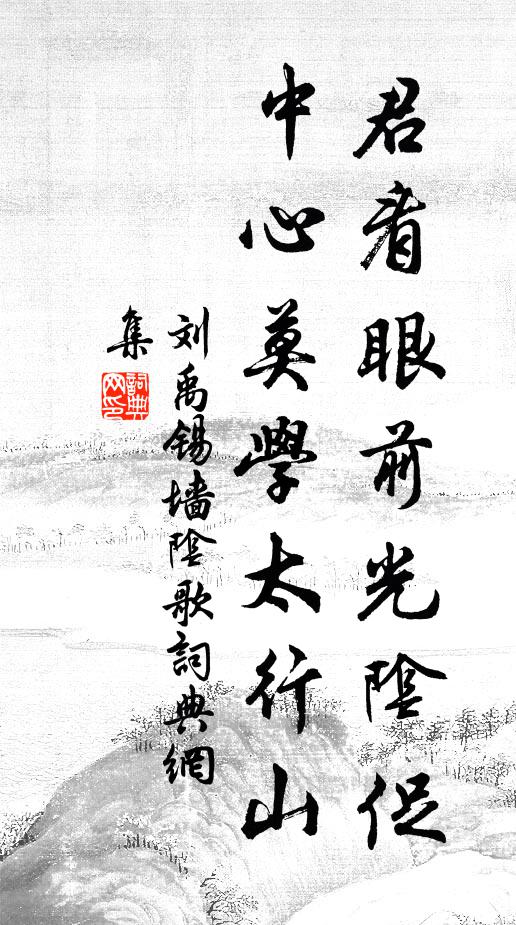 君看眼前光陰促
中心莫學太行山
刘禹锡墙陰歌詞典網
集
詞典网印